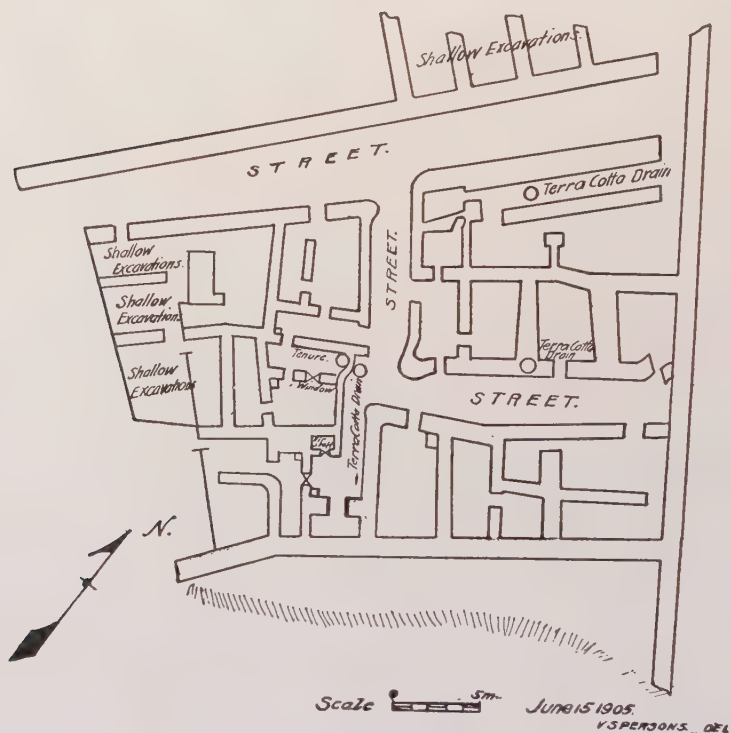 Shallow Excavations.
STREET.
Terra Cotta Drain
STREET.
Shallow
Excavations.
Shallow
Excavation
Shallow
Excavations
Tenure.
Window
Terra Cotta Drain
Terra Cotta
Drain
STREET.
N.
Scale
5m.
June 15 1905.
V S PERSONS DEL